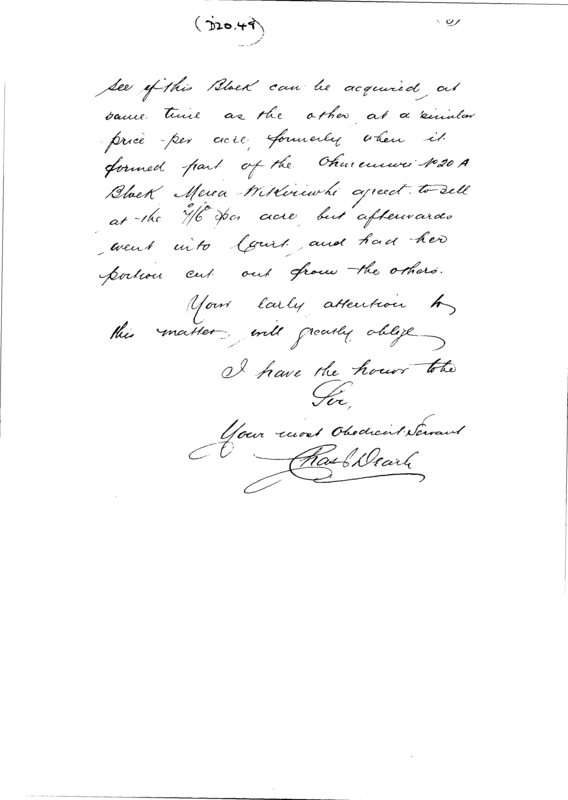 (D20.49)
see if this Block can be acquired at
same time as the other at a similar
price per acre, formerly when it
formed part of the No 20 A
Block agreed to sell
at the /6 per acre but afterwards
went into Court and had her
portion cut out from the others.
Your early attention to
this matter will greatly oblige
I have the honor to be
Sir,
Your most Obedient Servant
Chas